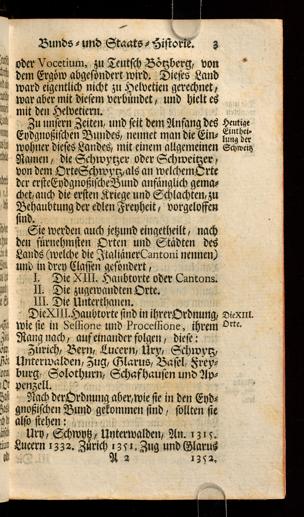 Bunds- und Staats-Historie. 3
oder Vocetium, zu Teutsch Bötzberg, von
dem Ergöw abgesondert wird. Dieses Land
ward eigentlich nicht zu Helvetien gerechnet,
war aber mit diesem verbündet, und hielt es
mit den Helvetiern.
Zu unsern Zeiten, und seit dem Anfang des
Eydgnoßischen Bundes, nennet man die Ein-
wohner dieses Landes, mit einem allgemeinen
Namen, die Schwytzer oder Schweitzer,
von dem Orte Schwytz, als an welchem Orte
der erste Eydgnoßische Bund anfänglich gema-
chet, auch die ersten Kriege und Schlachten, zu
Behaubtung der edlen Freyheit, vorgeloffen
sind.
Heutige
Einthei-
lung der
Schweitz
Sie werden auch jetzund eingetheilt, nach
den fürnehmsten Orten und Städten des
Lands (welche die Italiäner Cantoni nennen)
und in drey Classen gesondert,
I. Die XIII. Haubtorte oder Cantons.
II. Die zugewandten Orte.
III. Die Unterthanen.
Die XIII. Haubtorte sind in ihrer Ordnung,
wie sie in Sessione und Processione, ihrem
Rang nach, auf einander folgen, diese:
Die XIII.
Orte.
Zürich, Bern, Lucern, Ury, Schwytz,
Unterwalden, Zug, Glarus, Basel, Frey-
burg, Solothurn, Schafhausen und Ap-
penzell.
Nach der Ordnung aber, wie sie in den Eyd-
gnoßischen Bund gekommen sind, sollten sie
also stehen:
Ury, Schwytz, Unterwalden, An. 1315.
Lucern 1332. Zürich 1351. Zug und Glarus
A 2 1352.